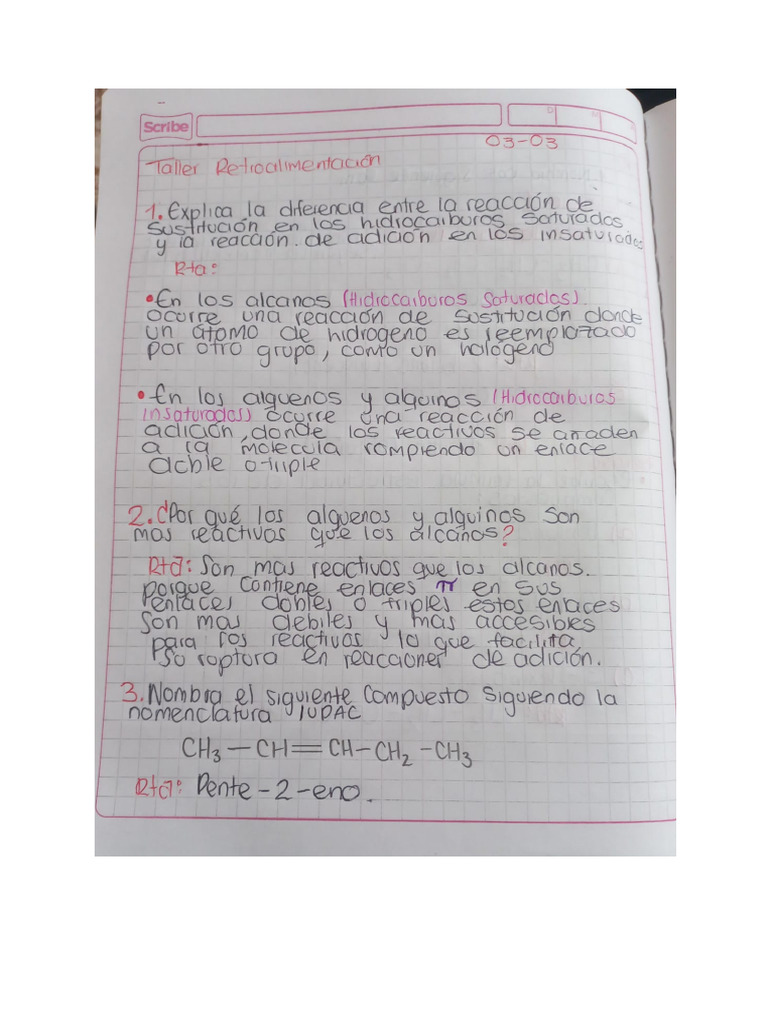 Scribe
03-03
Taller Retroalimentación
1. Explica la diferencia entre la reacción de
sustitución en los hidrocarburos saturados
y la reacción de adición en los insaturados
Rta:
• En los alcanos (Hidrocarburos saturados).
ocurre una reacción de sustitución donde
un átomo de hidrogeno es reemplazado
por otro grupo, como un halógeno
• En los alquenos y alquinos (Hidrocarburos
insaturados) ocurre una reacción de
adición, donde los reactivos se añaden
a la molecula rompiendo un enlace
doble o triple
2. ¿Por qué los alquenos y alquinos son
mas reactivos que los alcanos?
Rta: Son mas reactivos que los alcanos.
porque contiene enlaces π en sus
enlaces dobles o triples estos enlaces
son mas debiles y mas accesibles
para los reactivos lo que facilita
su roptura en reacciones de adición.
3. Nombra el siguiente compuesto siguiendo la
nomenclatura IUPAC
CH₃—CH=CH—CH₂—CH₃
Rta: Pente-2-eno.